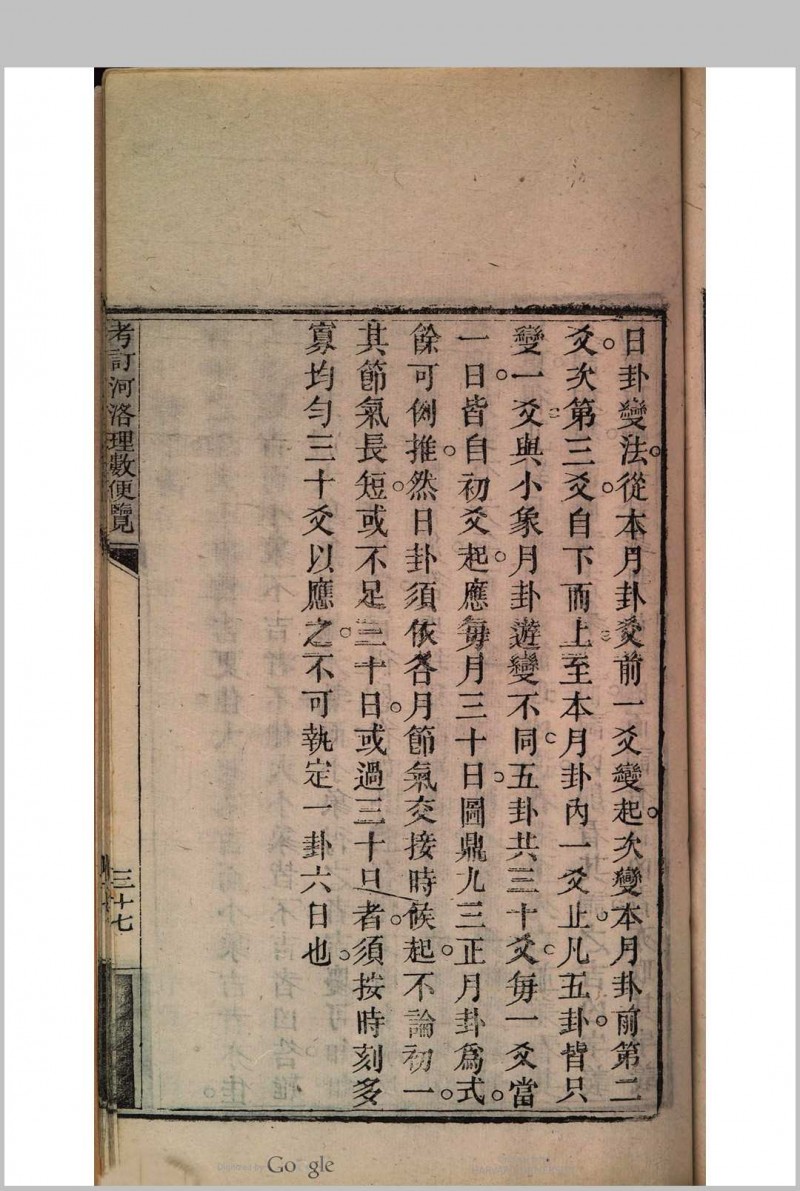 日卦變法從本月卦爻前一爻變起次變本月卦前第二
爻次第三爻自下而上至本月卦內一爻止凡五卦皆只
變一爻與小象月卦遊變不同五卦共三十爻每一爻當
一日皆自初爻起應每月三十日圖鼎九三正月卦爲式
餘可例推然日卦須依各月節氣交接時候起不論初一
其節氣長短或不足三十日或過三十日者須按時刻多
寡均勻三十爻以應之不可執定一卦六日也
考訂河洛理數便覽
三十七
Google